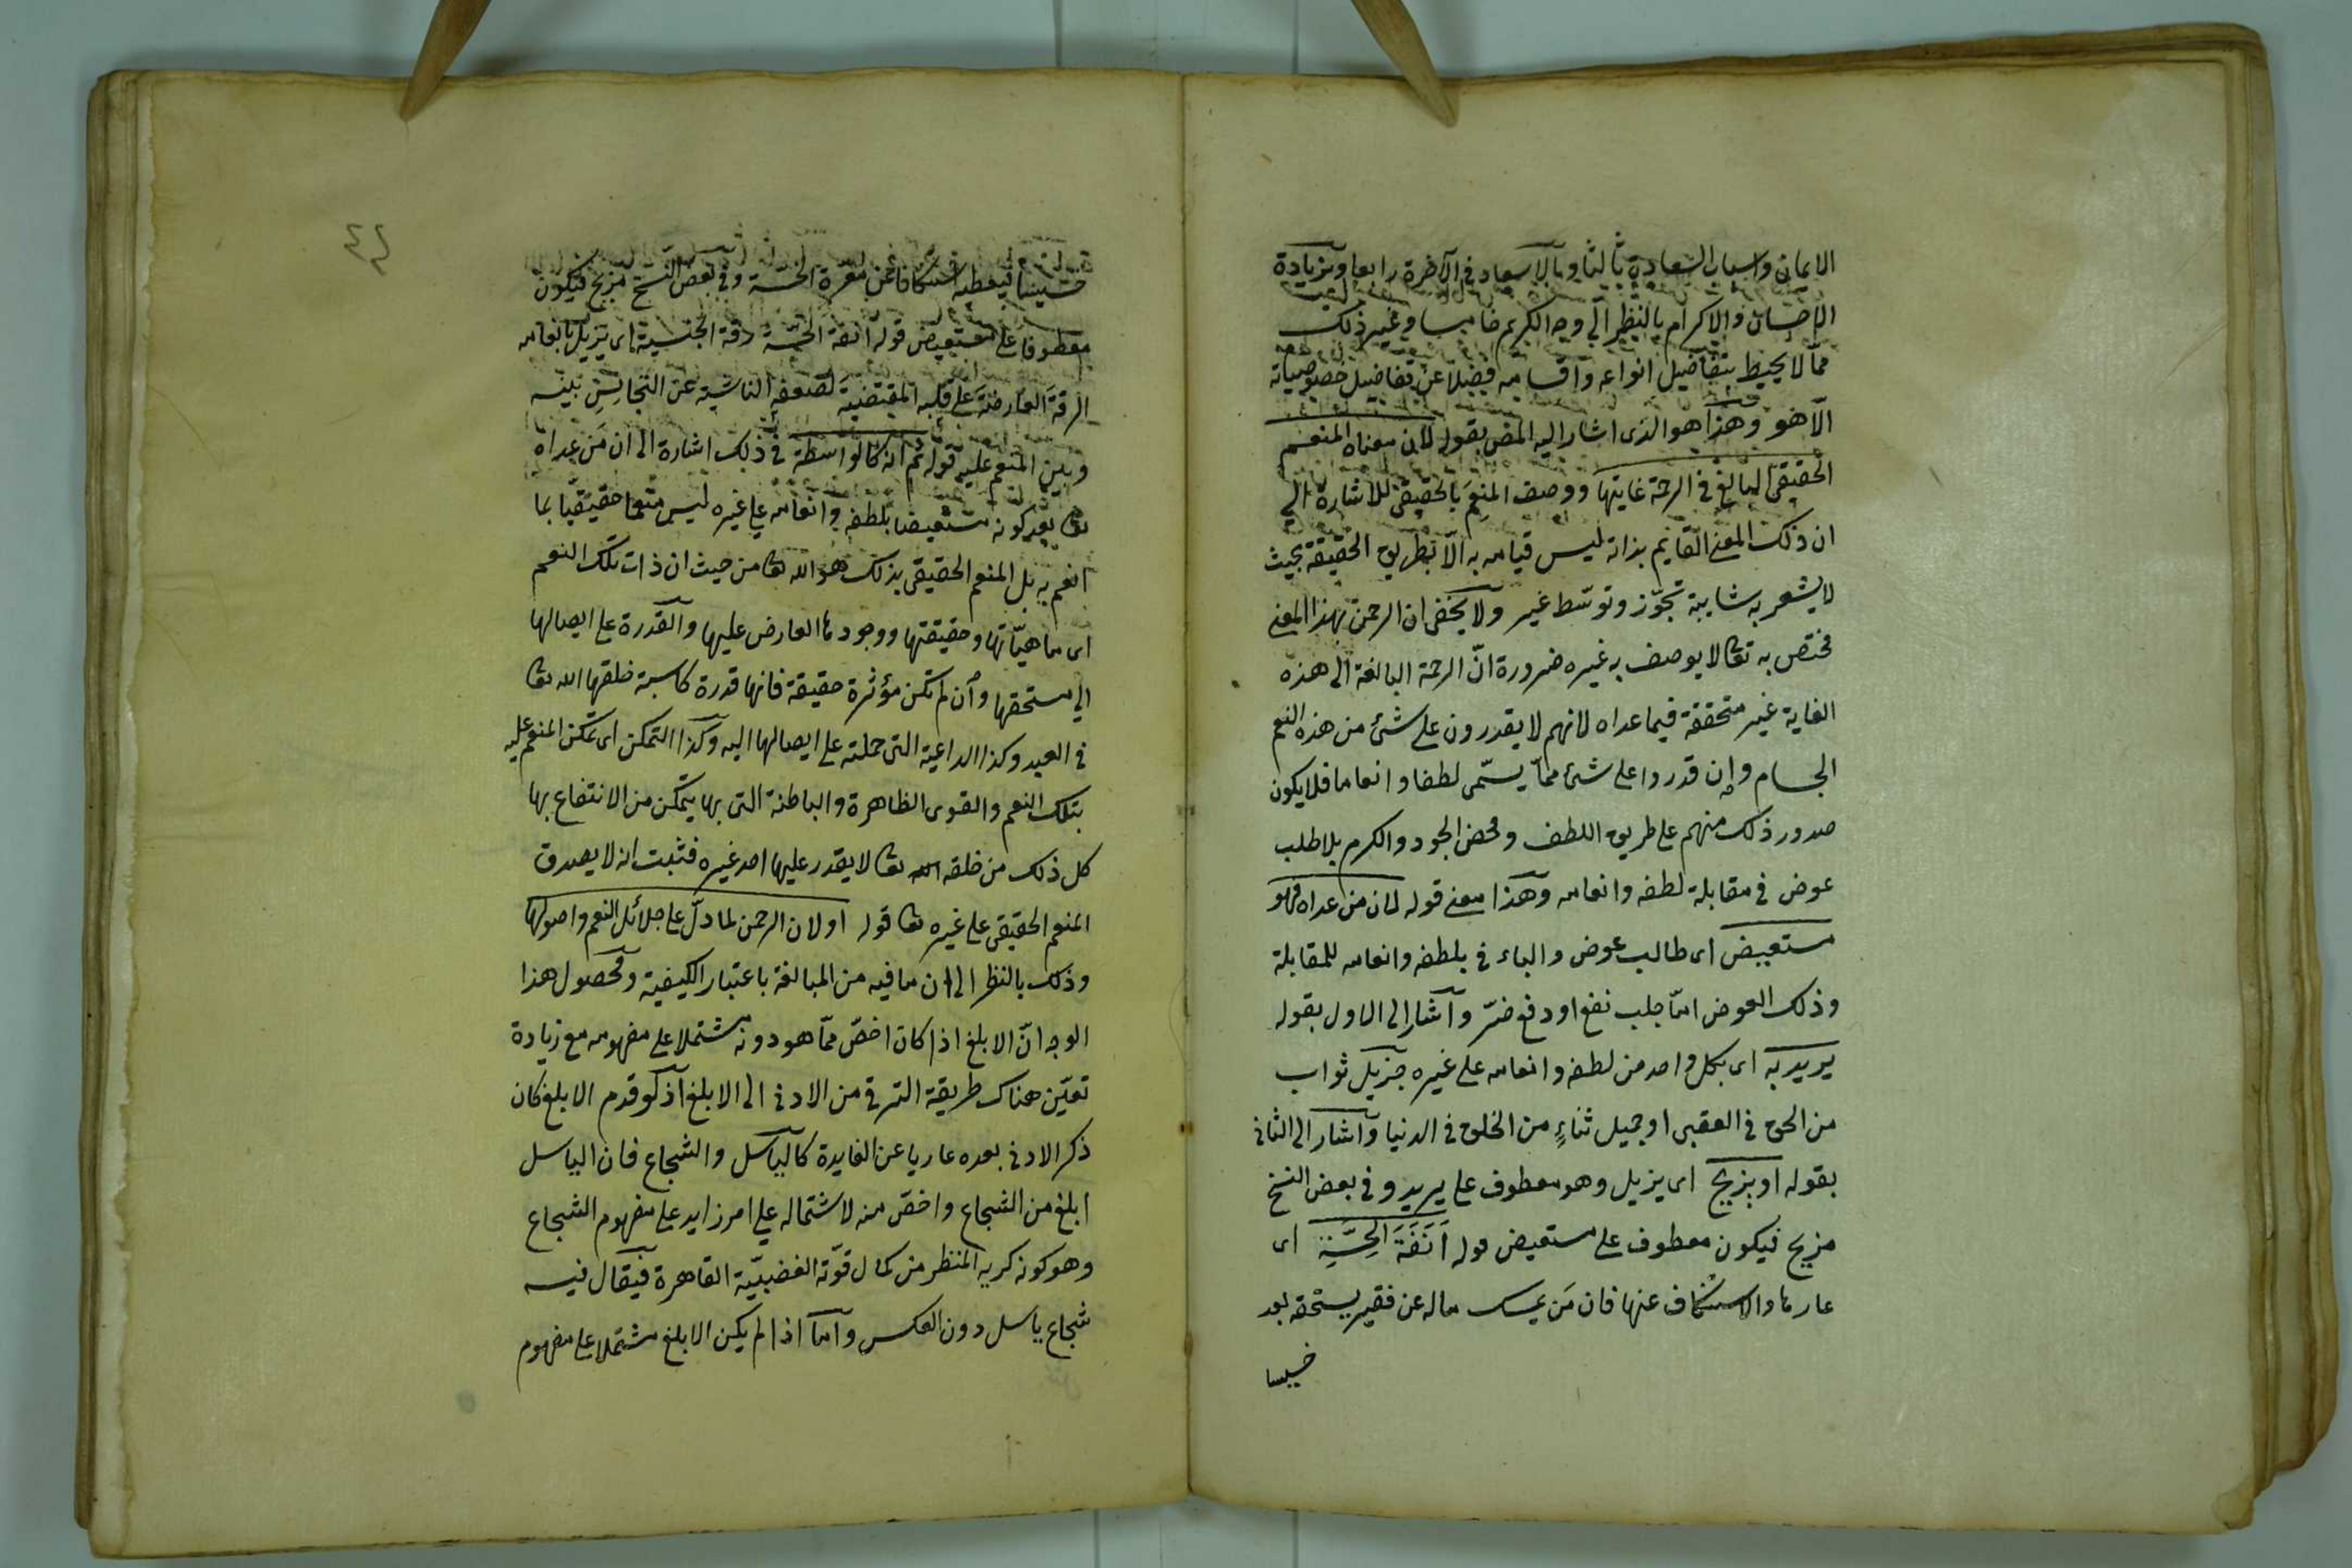 الايمان واسباب السعادة ثالثا وبالاسعاد في الآخرة رابعا وبزيادة
الاحسان والاكرام بالنظر الى وجه الكريم خامسا وغير ذلك
مما لا يحيط بتفاضيل انواعه واقسامه فضلا عن تفاضيل خصوصياته
الا هو وهذا هو الذى اشار اليه المص بقوله لان معناه المنعم
الحقيقى البالغ فى الرحمة غايتها ووصف المنعم بالحقيقى للاشارة الى
ان ذلك المعنى القايم بذاته ليس قيامه به الا بطريق الحقيقة بحيث
لا يشعر به شايبة تجوّز وتوسّط غير ولا يخفى ان الرحمن بهذا المعنى
مختص به تعا لا يوصف به غيره ضرورة انّ الرحمة البالغة الى هذه
الغاية غير متحققة فيما عداه لانهم لا يقدرون على شئ من هذه النعم
الجسام وإن قدروا على شئ ممّا يسمّى لطفا وانعاما فلا يكون
صدور ذلك منهم على طريق اللطف ومحض الجود والكرم بلا طلب
عوض فى مقابلة لطفه وانعامه وهذا معنى قوله لان من عداه فهو
مستعيض اى طالب عوض والباء فى بلطفه وانعامه للمقابلة
وذلك العوض امّا جلب نفع او دفع ضرّ واشار الى الاول بقوله
يريد به اى بكل واحد من لطفه وانعامه على غيره جزيل ثواب
من الحق فى العقبى او جميل ثناءٍ من الخلق فى الدنيا واشار الى الثانى
بقوله او بزيح اى يزيل وهو معطوف على يريد وفى بعض النسخ
مزيح فيكون معطوف على مستعيض قوله اَنَفَةَ الخِسَّةِ اى
عارها والاستنكاف عنها فان مَن يمسك ماله عن فقير يستحقه يعد
خسيسا
٤٢
خسيسا فيعطيه استنكافا عن معرة الخسة وفى بعض النسخ مزيح فيكون
معطوفا على مستعيض قوله انفة الخسّة رقة الجنسية اى يزيل بانعامه
الرقةَ العارضةَ على قلبه المقتضيةَ لضعفه الناشيةِ عن التجانس بينه
وبين المنعم عليه قوله ثم انه كالواسطة فى ذلك اشارة الى ان مَن عداه
تعا بعد كونه مستعيضا بلطفه وانعامه على غيره ليس منعما حقيقيّا بما
انعم به بل المنعم الحقيقى بذلك هو الله تعا من حيث ان ذات تلك النعم
اى ماهيّاتها وحقيقتها ووجودها العارض عليها والقدرة على ايصالها
الى مستحقها وان لم تكن مؤثرة حقيقة فانها قدرة كاسبة خلقها الله تعا
فى العبد وكذا الداعية التى حملته على ايصالها اليه وكذا التمكن اى تمكن المنعم عليه
بتلك النعم والقوى الظاهرة والباطنة التى بها يتمكن من الانتفاع بها
كل ذلك من خلقه الله تعا لا يقدر عليها احد غيره فثبت انه لا يصدق
المنعم الحقيقى على غيره تعا قوله او لان الرحمن لما دلّ على جلائل النعم واصولها
وذلك بالنظر الى ان ما فيه من المبالغة باعتبار الكيفية ومحصول هذا
الوجه انّ الابلغ اذا كان اخصّ ممّا هو دونه مشتملا على مفهومه مع زيادة
تعيّن هناك طريقة الترقى من الادنى الى الابلغ اذ لو قدم الابلغ كان
ذكر الادنى بعده عاريا عن الفايدة كالباسل والشجاع فان الباسل
ابلغ من الشجاع واخصّ منه لاشتماله على امر زايد على مفهوم الشجاع
وهو كونه كريه المنظر من كمال قوّته الغضبيّة القاهرة فيقال فيه
شجاع باسل دون العكس واما اذا لم يكن الابلغ مشتملا على مفهوم